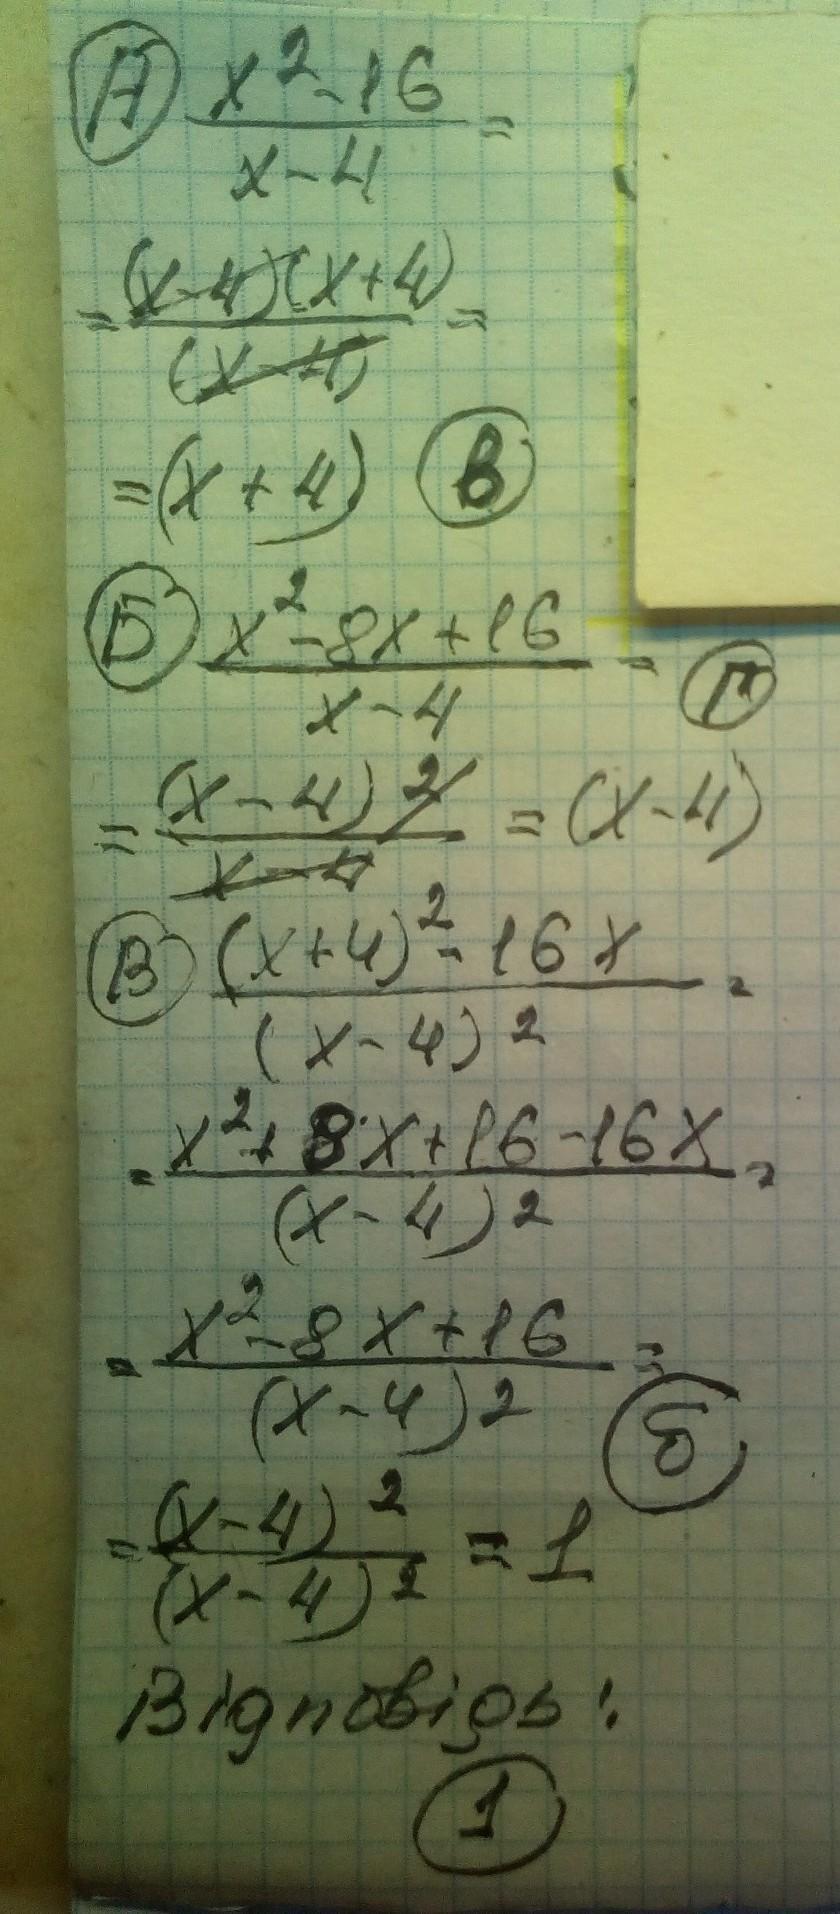 А x²-16 / x-4 =
= (x-4)(x+4) / (x-4) =
=(x+4) в
Б x²-8x+16 / x-4 = г
= (x-4)² / x-4 = (x-4)
В (x+4)²-16x / (x-4)² =
= x²+8x+16-16x / (x-4)² =
= x²-8x+16 / (x-4)² =
б
= (x-4)² / (x-4)² = 1
Відповідь:
1